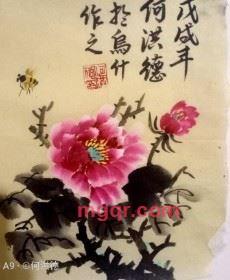 戊戌年
何洪德
於烏什
作之
mgqr.com
A9·©何洪德